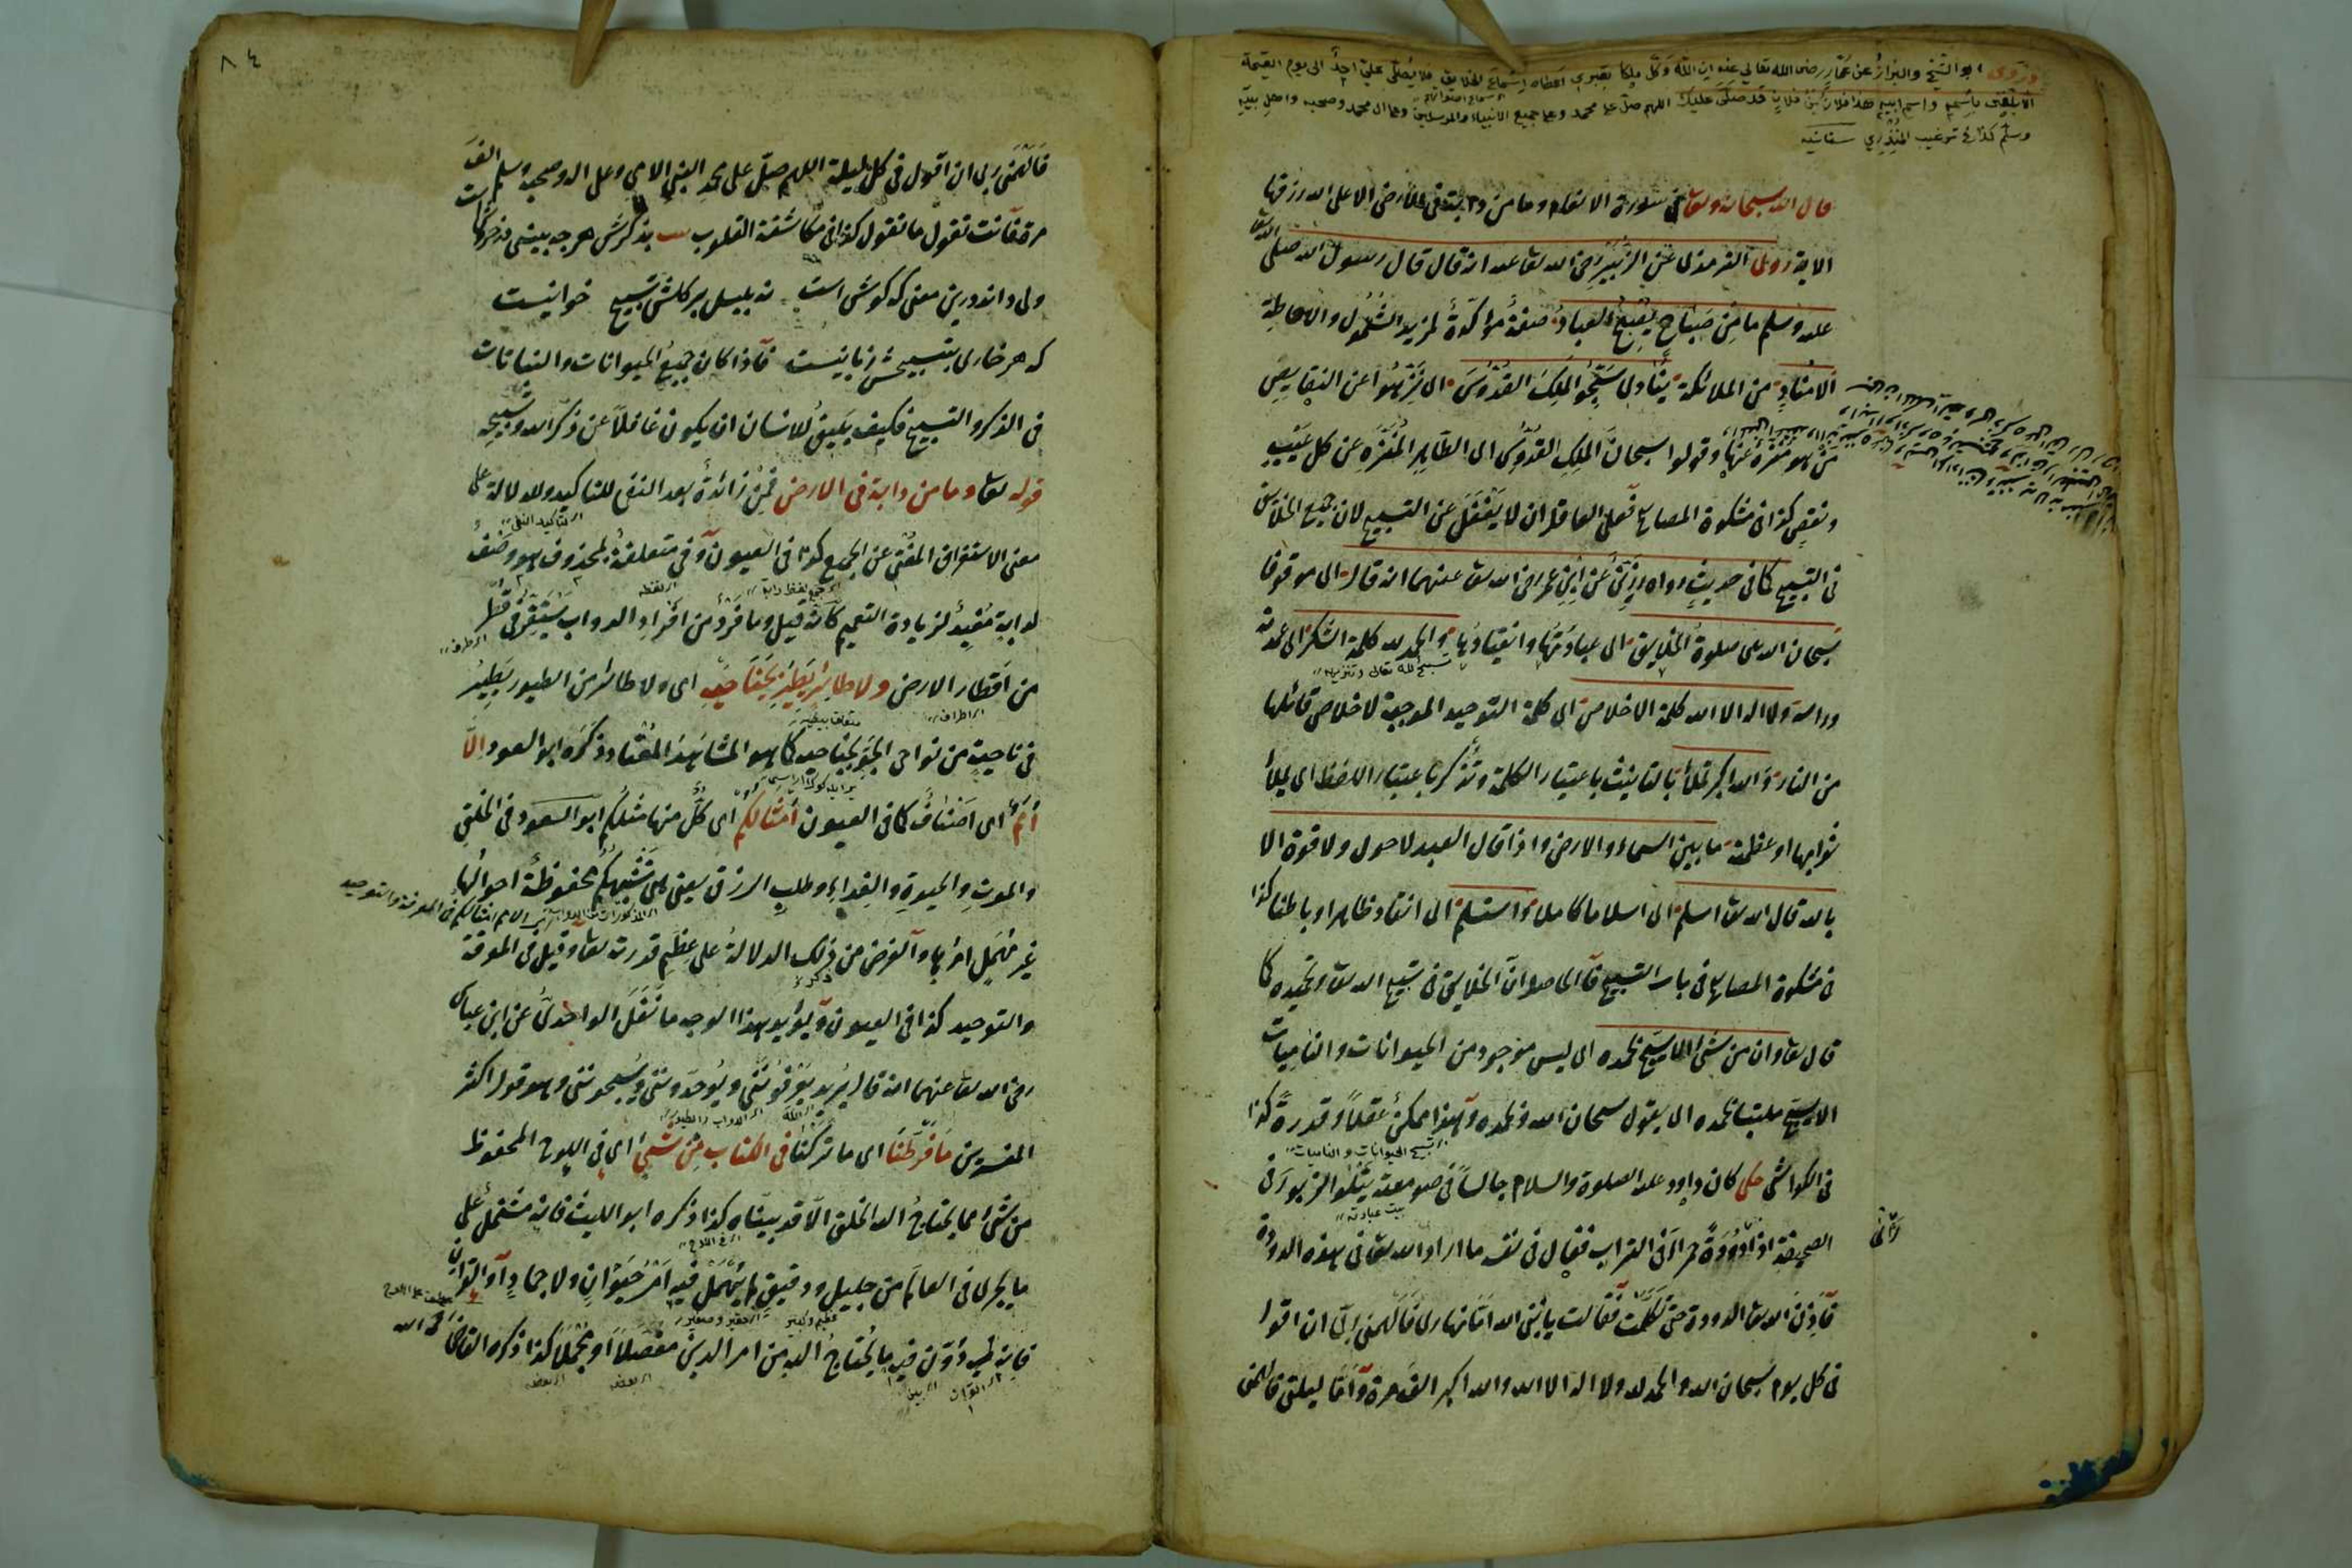 وروى ابو الشيخ والبزار عن عمار رضى الله تعالى عنه ان الله وكل ملكا بقبرى اعطاه اسماع الخلايق فلا يصلى على احد الى يوم القيمة
الا بلغنى باسمه واسم ابيه هذا فلان بن فلان قد صلى عليك اللهم صل على محمد وعلى جميع الانبياء والمرسلين وعلى ال محمد وصحبه واهل بيته
وسلم كذا فى ترغيب المنذرى
قال الله سبحانه وتعا فى سورة الانعام وما من دابة فى الارض الا على الله رزقها
الاية روى الترمذى عن الزبير رضى الله تعا عنه انه قال قال رسول الله صلى الله تعا
عليه وسلم ما من صباح يصبح العباد صفة مؤكدة لمزيد الشمول والاحاطة
الا مناد من الملائكة ينادى سبحوا الملك القدوس اى نزهوا عن النقايص
من هو منزه عنها وقولوا سبحان الملك القدوس اى الطاهر المنزه عن كل عيب
ونقص كذا فى مشكوة المصابيح فعلى العاقل ان لا يغفل عن التسبيح لان جميع الخلايق
فى التسبيح كما فى حديث رواه رزين عن ابن عمر رضى الله تعا عنهما انه قال اى موقوفا
سبحان الله هى صلوة الخلايق اى عبادتها وانقيادها والحمد لله كلمة الشكر اى عمدته
تسبيح الله تعالى وتنزيهه
وراسه ولا اله الا الله كلمة الاخلاص اى كلمة التوحيد الموجبة لاخلاص قائلها
من النار والله اكبر تملأ بالتانيث باعتبار الكلمة وتذكر باعتبار اللفظ اى يملأ
ثوابها او عظمة ما بين السماء والارض واذا قال العبد لا حول ولا قوة الا
بالله قال الله تعا اسلم اى اسلاما كاملا واستسلم اى انقاد ظاهرا وباطنا كذا
فى مشكوة المصابيح فى باب التسبيح فالحاصل ان الخلايق فى تسبيح الله تعا وتحميده كما
قال تعا وان من شئ الا يسبح بحمده اى ليس موجود من الحيوانات والناميات
الا يسبح ملتبسا بحمده اى يقول سبحان الله وبحمده وهذا ممكن عقلا وقدرة كذا
تسبيح الحيوانات والناميات
فى الكواشى حكى كان داود عليه الصلوة والسلام جالسا فى صومعته يتلوا الزبور فى
بيت عبادته
الصحيفة اذ راى دودة حمراء فى التراب فقال فى نفسه ما اراد الله تعا فى هذه الدودة
فاذن الله تعا الدودة حتى تكلمت فقالت يا نبى الله اما نهارى فالهمنى ربى ان اقول
فى كل يوم سبحان الله والحمد لله ولا اله الا الله والله اكبر الف مرة واما ليلتى فالهمنى
٨٤
فالهمنى ربى ان اقول فى كل ليلة اللهم صل على محمد النبى الامى وعلى اله وصحبه وسلم الف
مرة فانت تقول ما تقول كذا فى مكاشفة القلوب بذكرش هر چه بينى در خروشست
ولى داند درين معنى كه كوش است نه بلبل بر كلش تسبيح خوانيست
كه هر خارى بتسبيحش زبانيست فاذا كان جميع الحيوانات والنباتات
فى الذكر والتسبيح فكيف يليق للانسان ان يكون غافلا عن ذكر الله وتسبيحه
قوله تعا وما من دابة فى الارض فمن زائدة بعد النفى للتاكيد ولدلالة على
معنى الاستغراق المغنى عن الجمع كذا فى العيون وفى متعلقة بمحذوف هو وصف
لدابة مفيد لزيادة التعميم كانه قيل وما فرد من افراد الدواب يستقر فى قطر
من اقطار الارض ولا طائر يطير بجناحيه اى ولا طائر من الطيور يطير
متعلق بيطير
فى ناحية من نواحى الجو بجناحيه كما هو المشاهد المعتاد ذكره ابو السعود الا
امم اى اصناف كما فى العيون امثالكم اى كل منها مثلكم ابو السعود فى الخلق
والموت والحيوة والغداء وطلب الرزق يعنى هى تشبهكم محفوظة احوالها
غير مهمل امرها والغرض من ذلك الدلالة على عظم قدرته تعا وقيل فى المعرفة
والتوحيد كذا فى العيون ويؤيد هذا الوجه ما نقل الواحدى عن ابن عباس
رضى الله تعا عنهما انه قال يريد يعرفوننى ويوحدوننى ويسبحوننى وهو قول اكثر
المفسرين ما فرطنا اى ما تركنا فى الكتاب من شئ اى فى اللوح المحفوظ
من شئ مما يحتاج اليه الخلق الا قد بيناه كذا ذكره ابو الليث فانه مشتمل على
ما يجرى فى العالم من جليل ودقيق لم يهمل فيه امر حيوان ولا جماد او القران
فانه قد دون فيه ما يحتاج اليه من امر الدين مفصلا او مجملا كذا ذكره القاضى